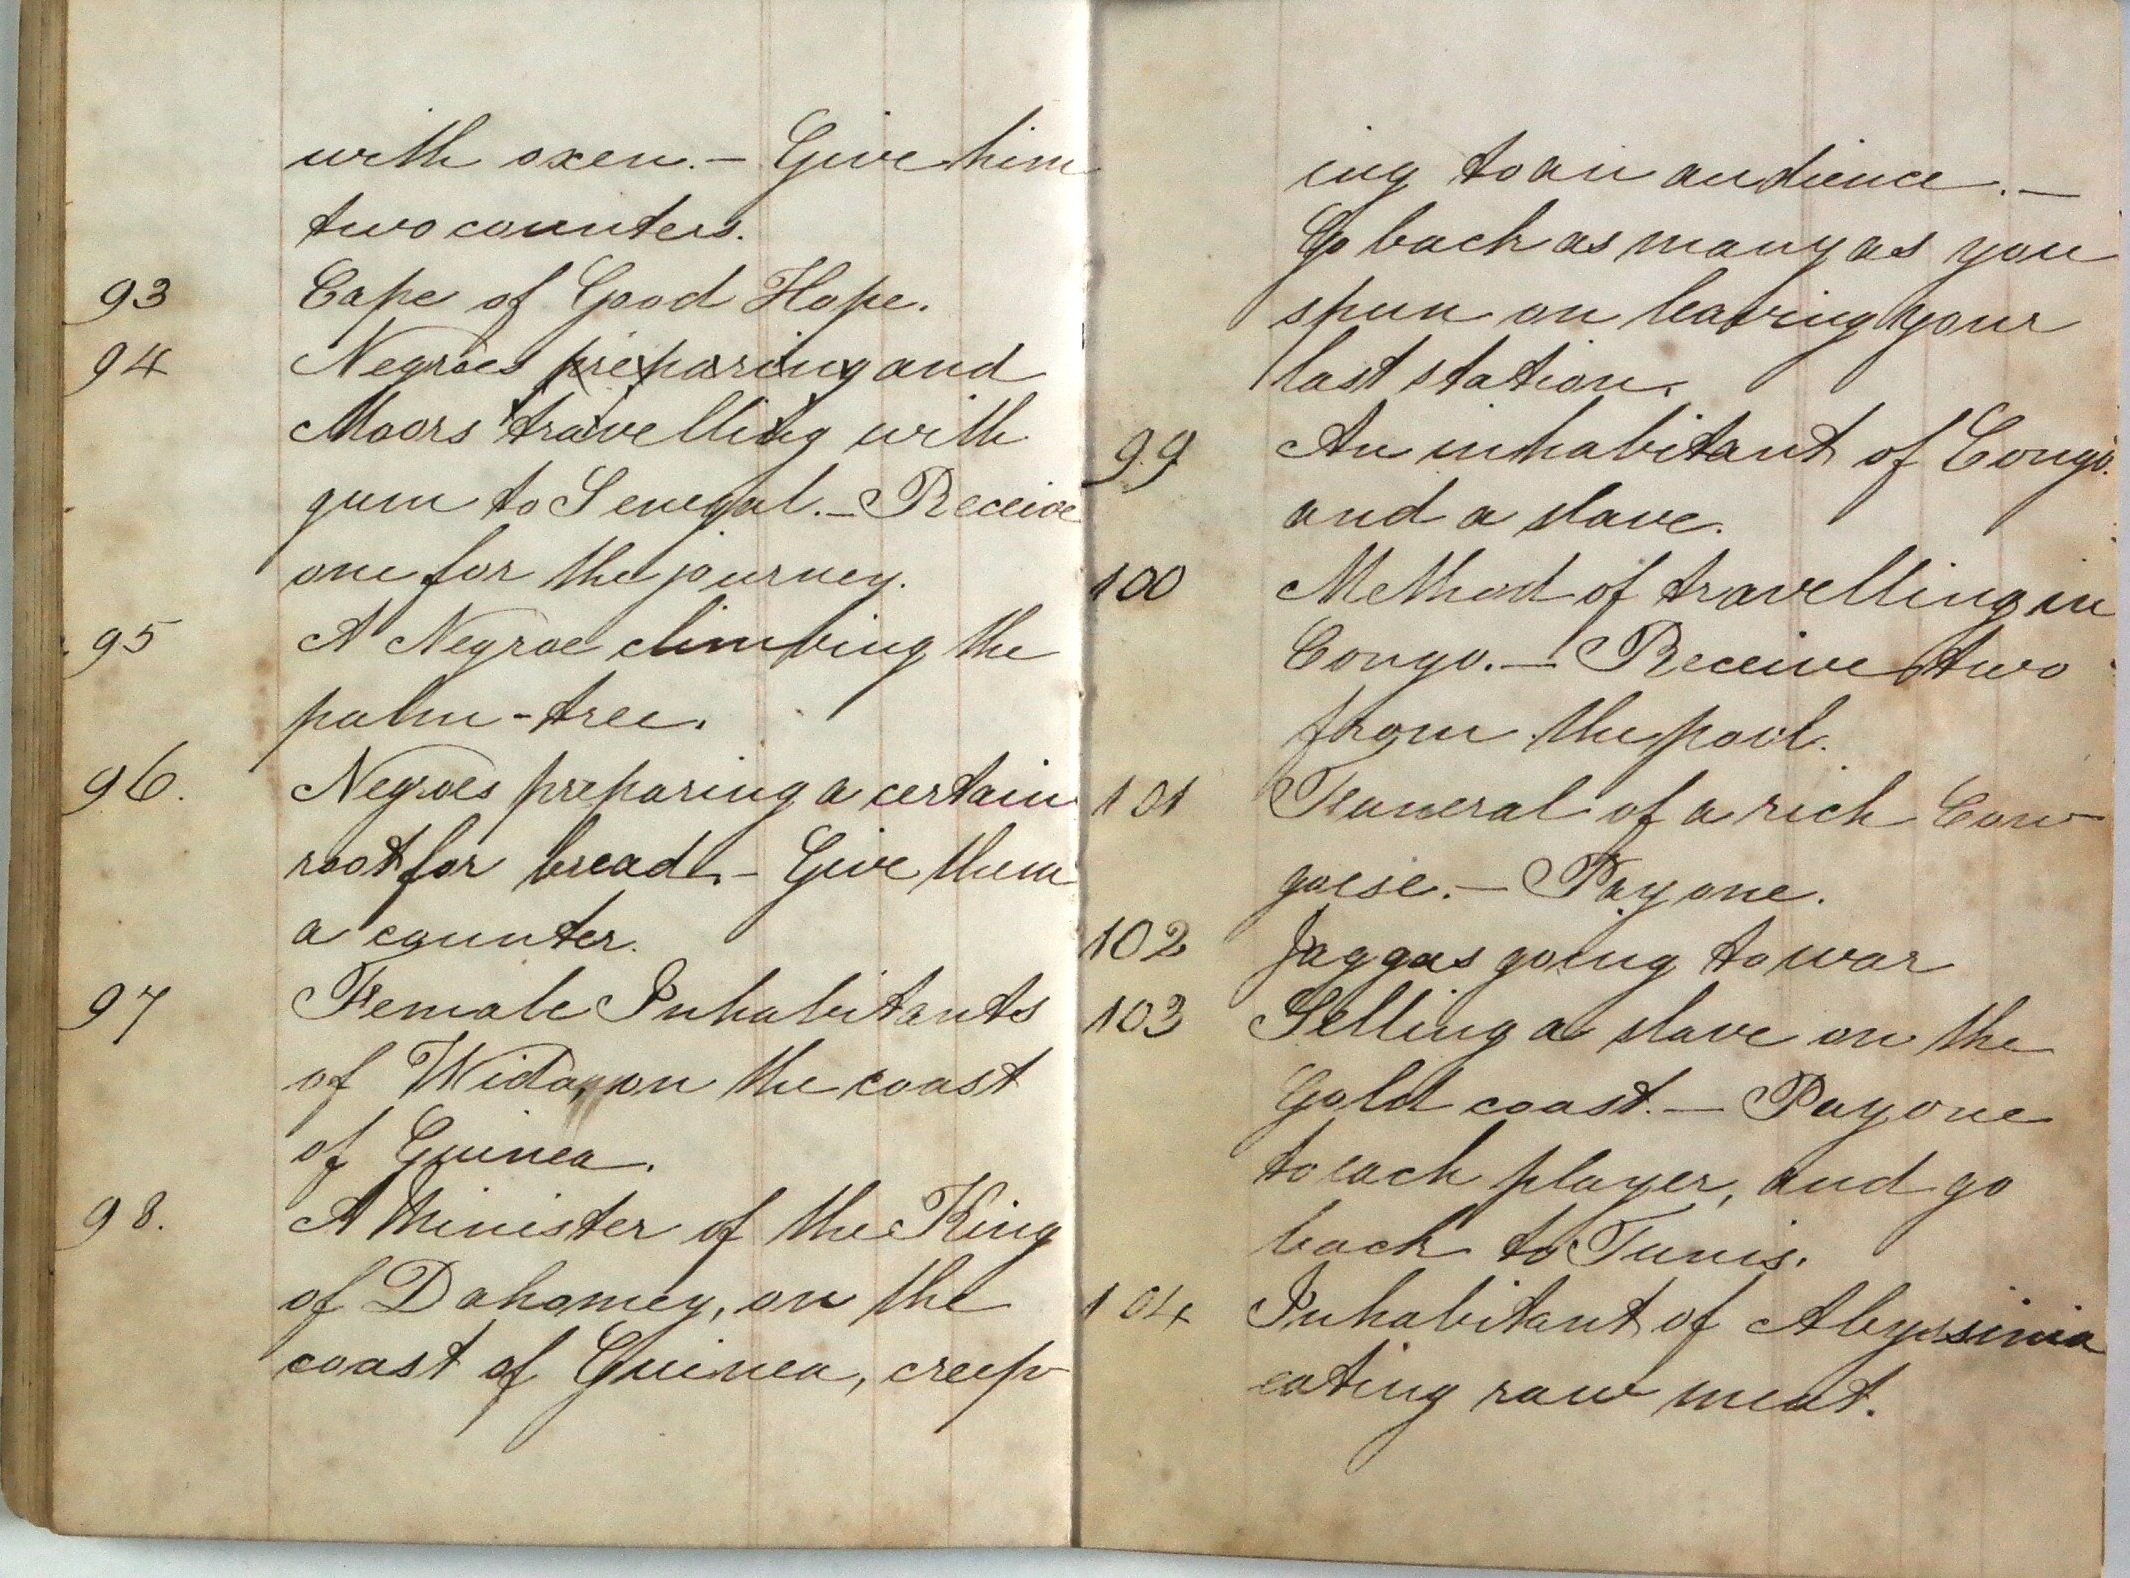 with oxen. – Give him
two counters.
93 Cape of Good Hope.
94 Negroes preparing and
Moors travelling with
gum to Senegal. – Receive
one for the journey.
95 A Negroe climbing the
palm-tree.
96. Negroes preparing a certain
root for bread. – Give them
a counter.
97 Female Inhabitants
of Wida, on the coast
of Guinea.
98. A Minister of the King
of Dahomey, on the
coast of Guinea, creep-
ing to an audience. –
Go back as many as you
spun on leaving your
last station.
99 An inhabitant of Congo.
and a slave.
100 Method of travelling in
Congo. – Receive two
from the pool.
101 Funeral of a rich Con-
goese. – Pay one.
102 Jaggas going to war
103 Selling a slave on the
Gold coast. – Pay one
to each player, and go
back to Tunis.
104 Inhabitant of Abyssinia
eating raw meat.